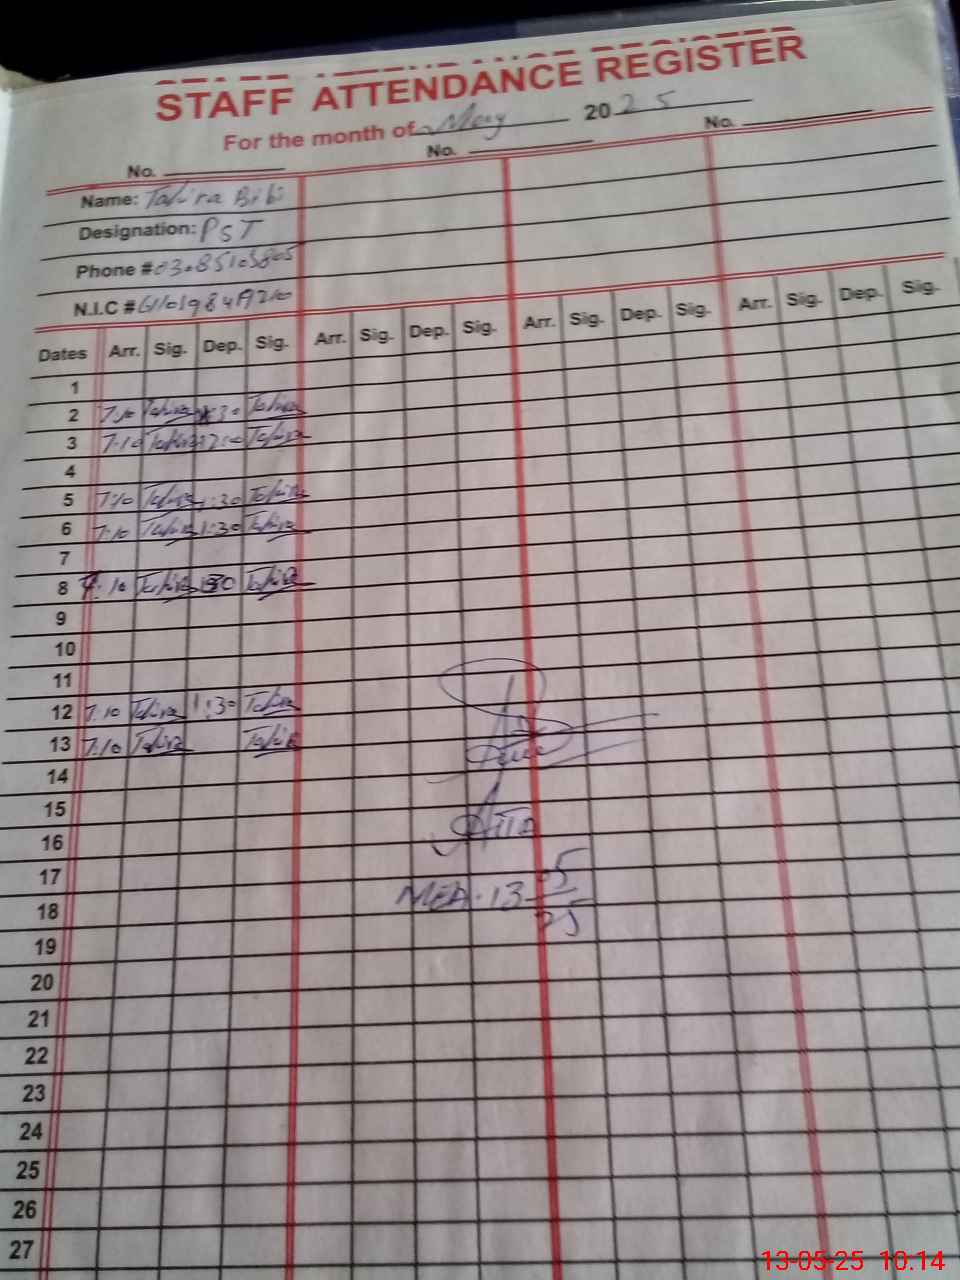 STAFF ATTENDANCE REGISTER
For the month of May 2025
No. No. No.
Name: Tahira Bibi
Designation: PST
Phone #
N.I.C #
Dates Arr. Sig. Dep. Sig. Arr. Sig. Dep. Sig. Arr. Sig. Dep. Sig. Arr. Sig. Dep. Sig.
1
2 7:10 Tahira Tahira
3 7:10 Tahira 12:00 Tahira
4
5 7:10 Tahira 1:30 Tahira
6 7:10 Tahira 1:30 Tahira
7
8 7:10 Tahira Tahira
9
10
11
12 7:10 Tahira 1:30 Tahira
13 7:10 Tahira Tahira
14
15
16
17
18 MEA. 13 05/25
19
20
21
22
23
24
25
26
27
13-05-25 10.14